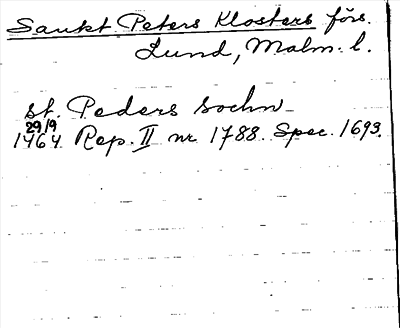 Sankt Peters Klosters förs.
Lund, Malm. l.
St. Peders Sochn
29/9
1464 Rep. II nr 1788. Spec. 1693.